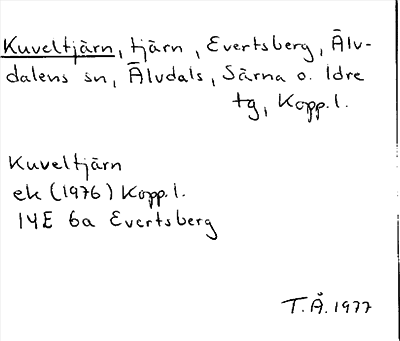 Kuveltjärn, tjärn, Evertsberg, Älv-
dalens sn, Älvdals, Särna o. Idre
tg, Kopp.l.
Kuveltjärn
ek (1976) Kopp.l.
14E 6a Evertsberg
T.Å. 1977